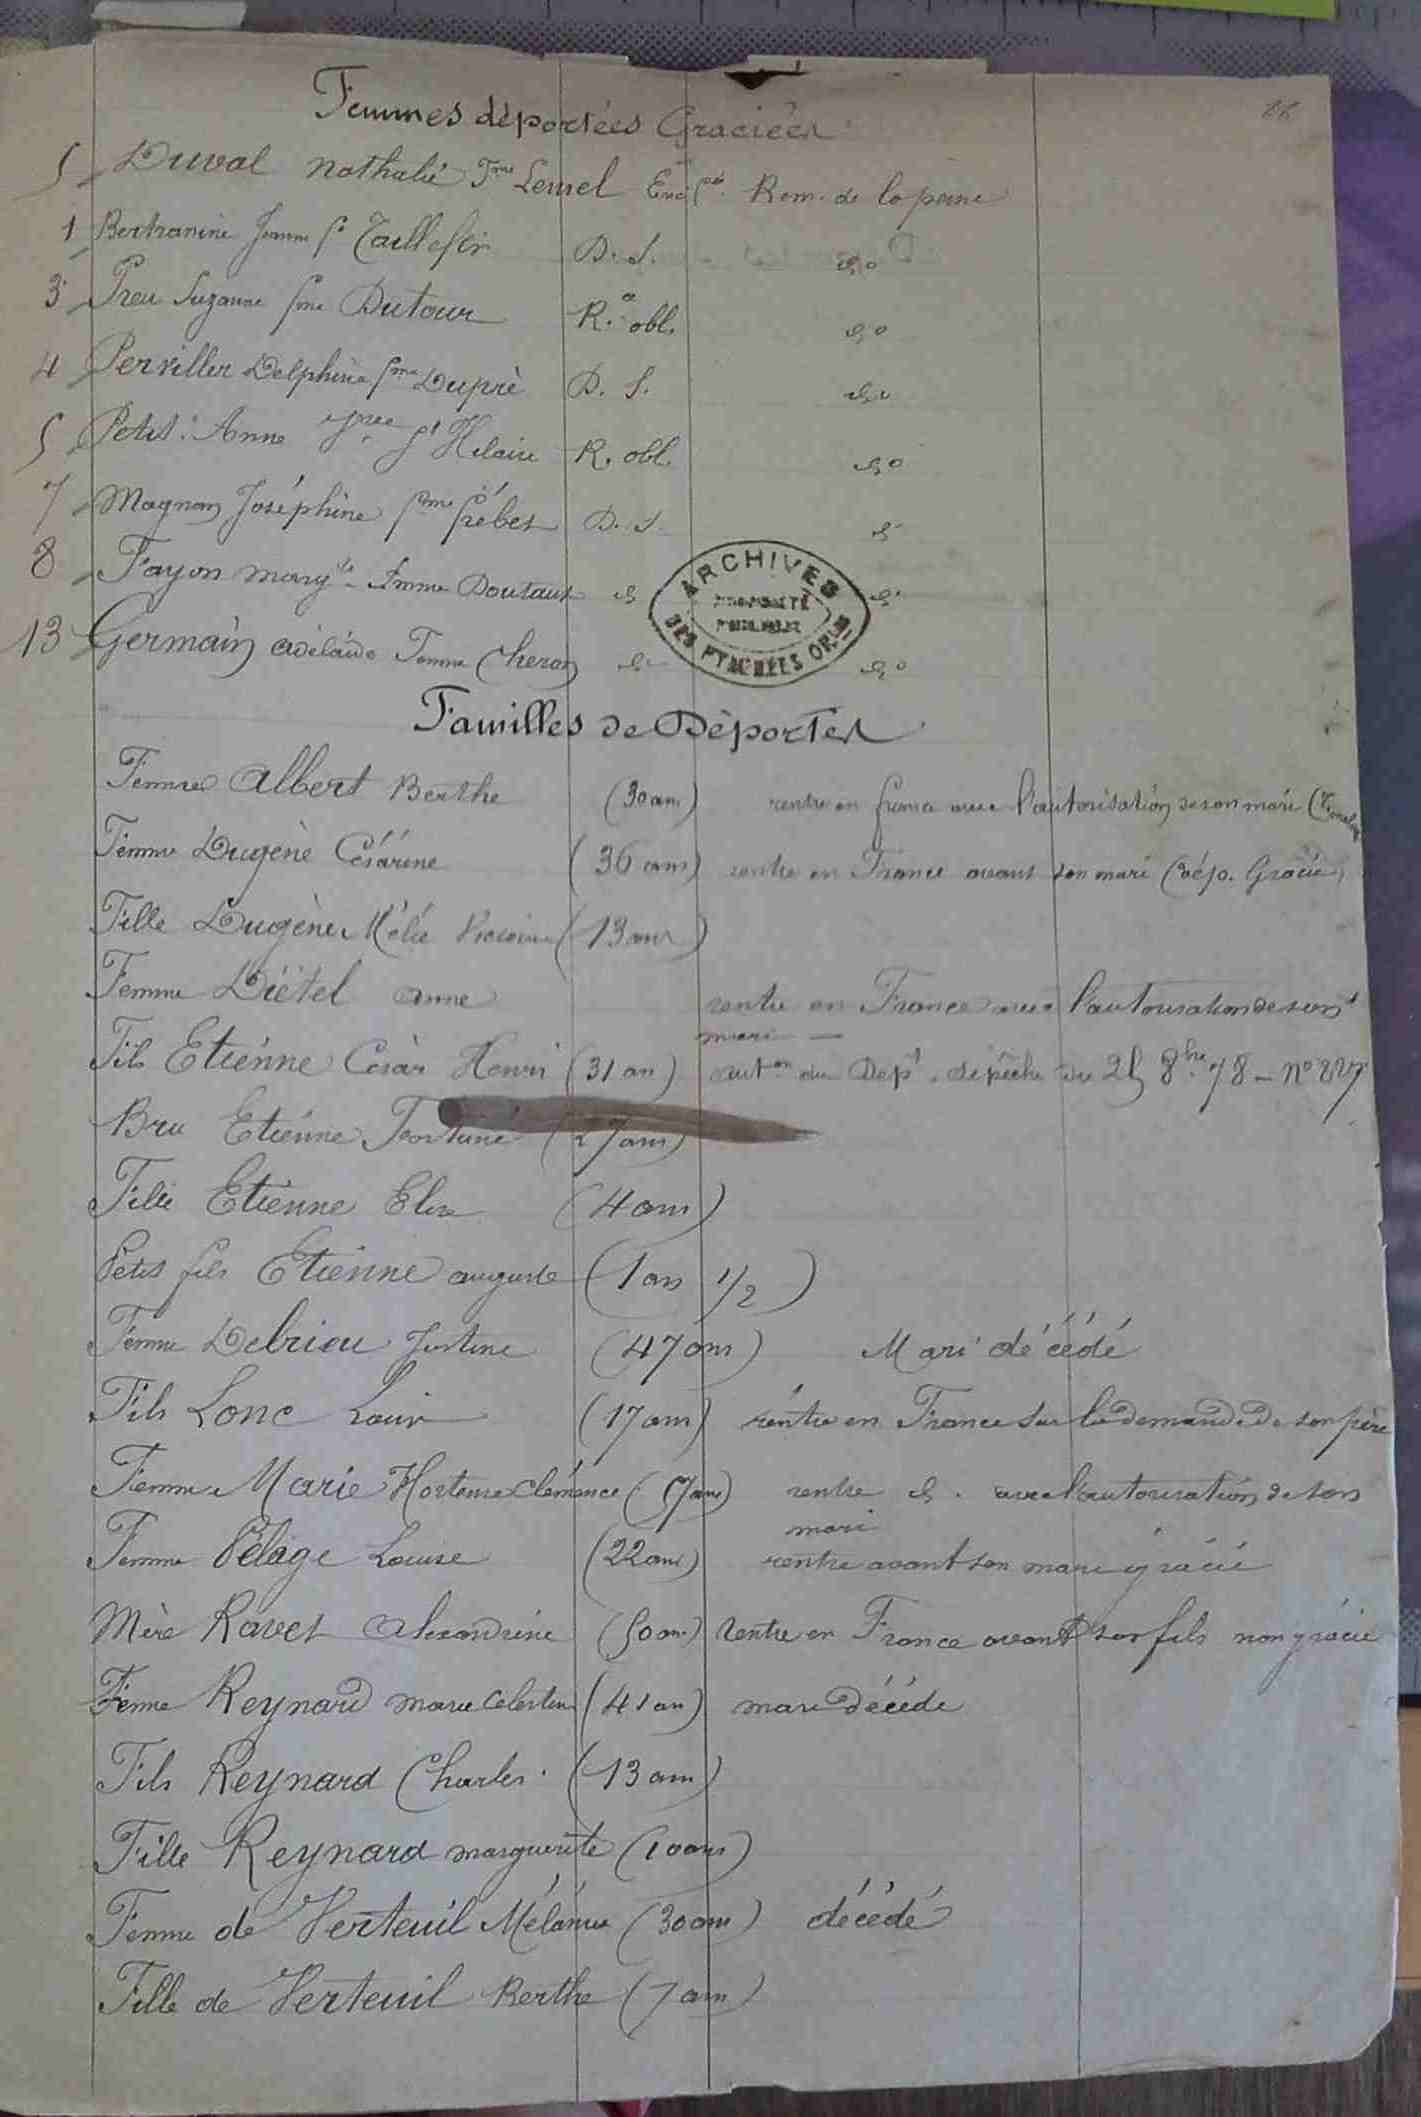 Femmes déportées Graciées
5 Duval Nathalie fme Lemel Enc. ftée Rem. de la peine
1 Bertranine Jeanne fe Taillefer D. S. do
3 Preu Suzanne fme Dutour R. obl. do
4 Derviller Delphine fme Dupré D. S. do
5 Petit Anne St Hilaire R. obl. do
7 Magnan Joséphine fme D. S. d
8 Fayon Margte femme Doutaut d d
13 Germain Adélaïde Femme Cheron d do
ARCHIVES
PROPRIÉTÉ
PUBLIQUE
DES PYRÉNÉES ORLES
Familles de Déportés
Femme Albert Berthe (30 ans) rentre en france avec l'autorisation de son mari
Femme Dugène Césárine (36 ans) rentre en France avant son mari (dép. Gracié)
Fille Dugène (13 ans)
Femme Diétel anne rentre en France avec l'autorisation de son
mari
Fils Etiénne Césàr Henri (31 an) auton du Dept. dépêche du 25 8bre 78 - No 227
Bru Etiénne (27 ans)
Fille Etiénne Elisa (4 ans)
Petit fils Etiénne auguste (1 an 1/2)
Femme Delriou Justine (47 ans) Mari décédé
Fils Lonc Louis (17 ans) rentre en France sur la demande de son père
Femme Marie Hortense Clémence rentre d. avec l'autorisation de son
mari
Femme Pélage Louise (22 ans) rentre avant son mari gracié
Mère Ravet Alexandrine (50 an) Rentre en France avant son fils non gracié
Femme Reynard marie Celestine (41 an) mari décédé
Fils Reynard Charles. (13 ans)
Fille Reynard marguerite (10 ans)
Femme de Verteuil Mélanie (30 ans) décédé
Fille de Verteuil Berthe (7 ans)